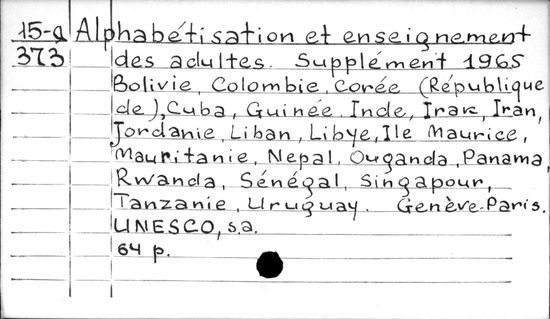 15-a Alphabétisation et enseignement
373 des adultes. Supplément 1965
Bolivie, Colombie, Corée (République
de), Cuba, Guinée, Inde, Irak, Iran,
Jordanie, Liban, Libye, Ile Maurice,
Mauritanie, Nepal, Ouganda, Panama,
Rwanda, Sénégal, Singapour,
Tanzanie, Uruguay. Genève-Paris.
UNESCO, s.a.
64 p.